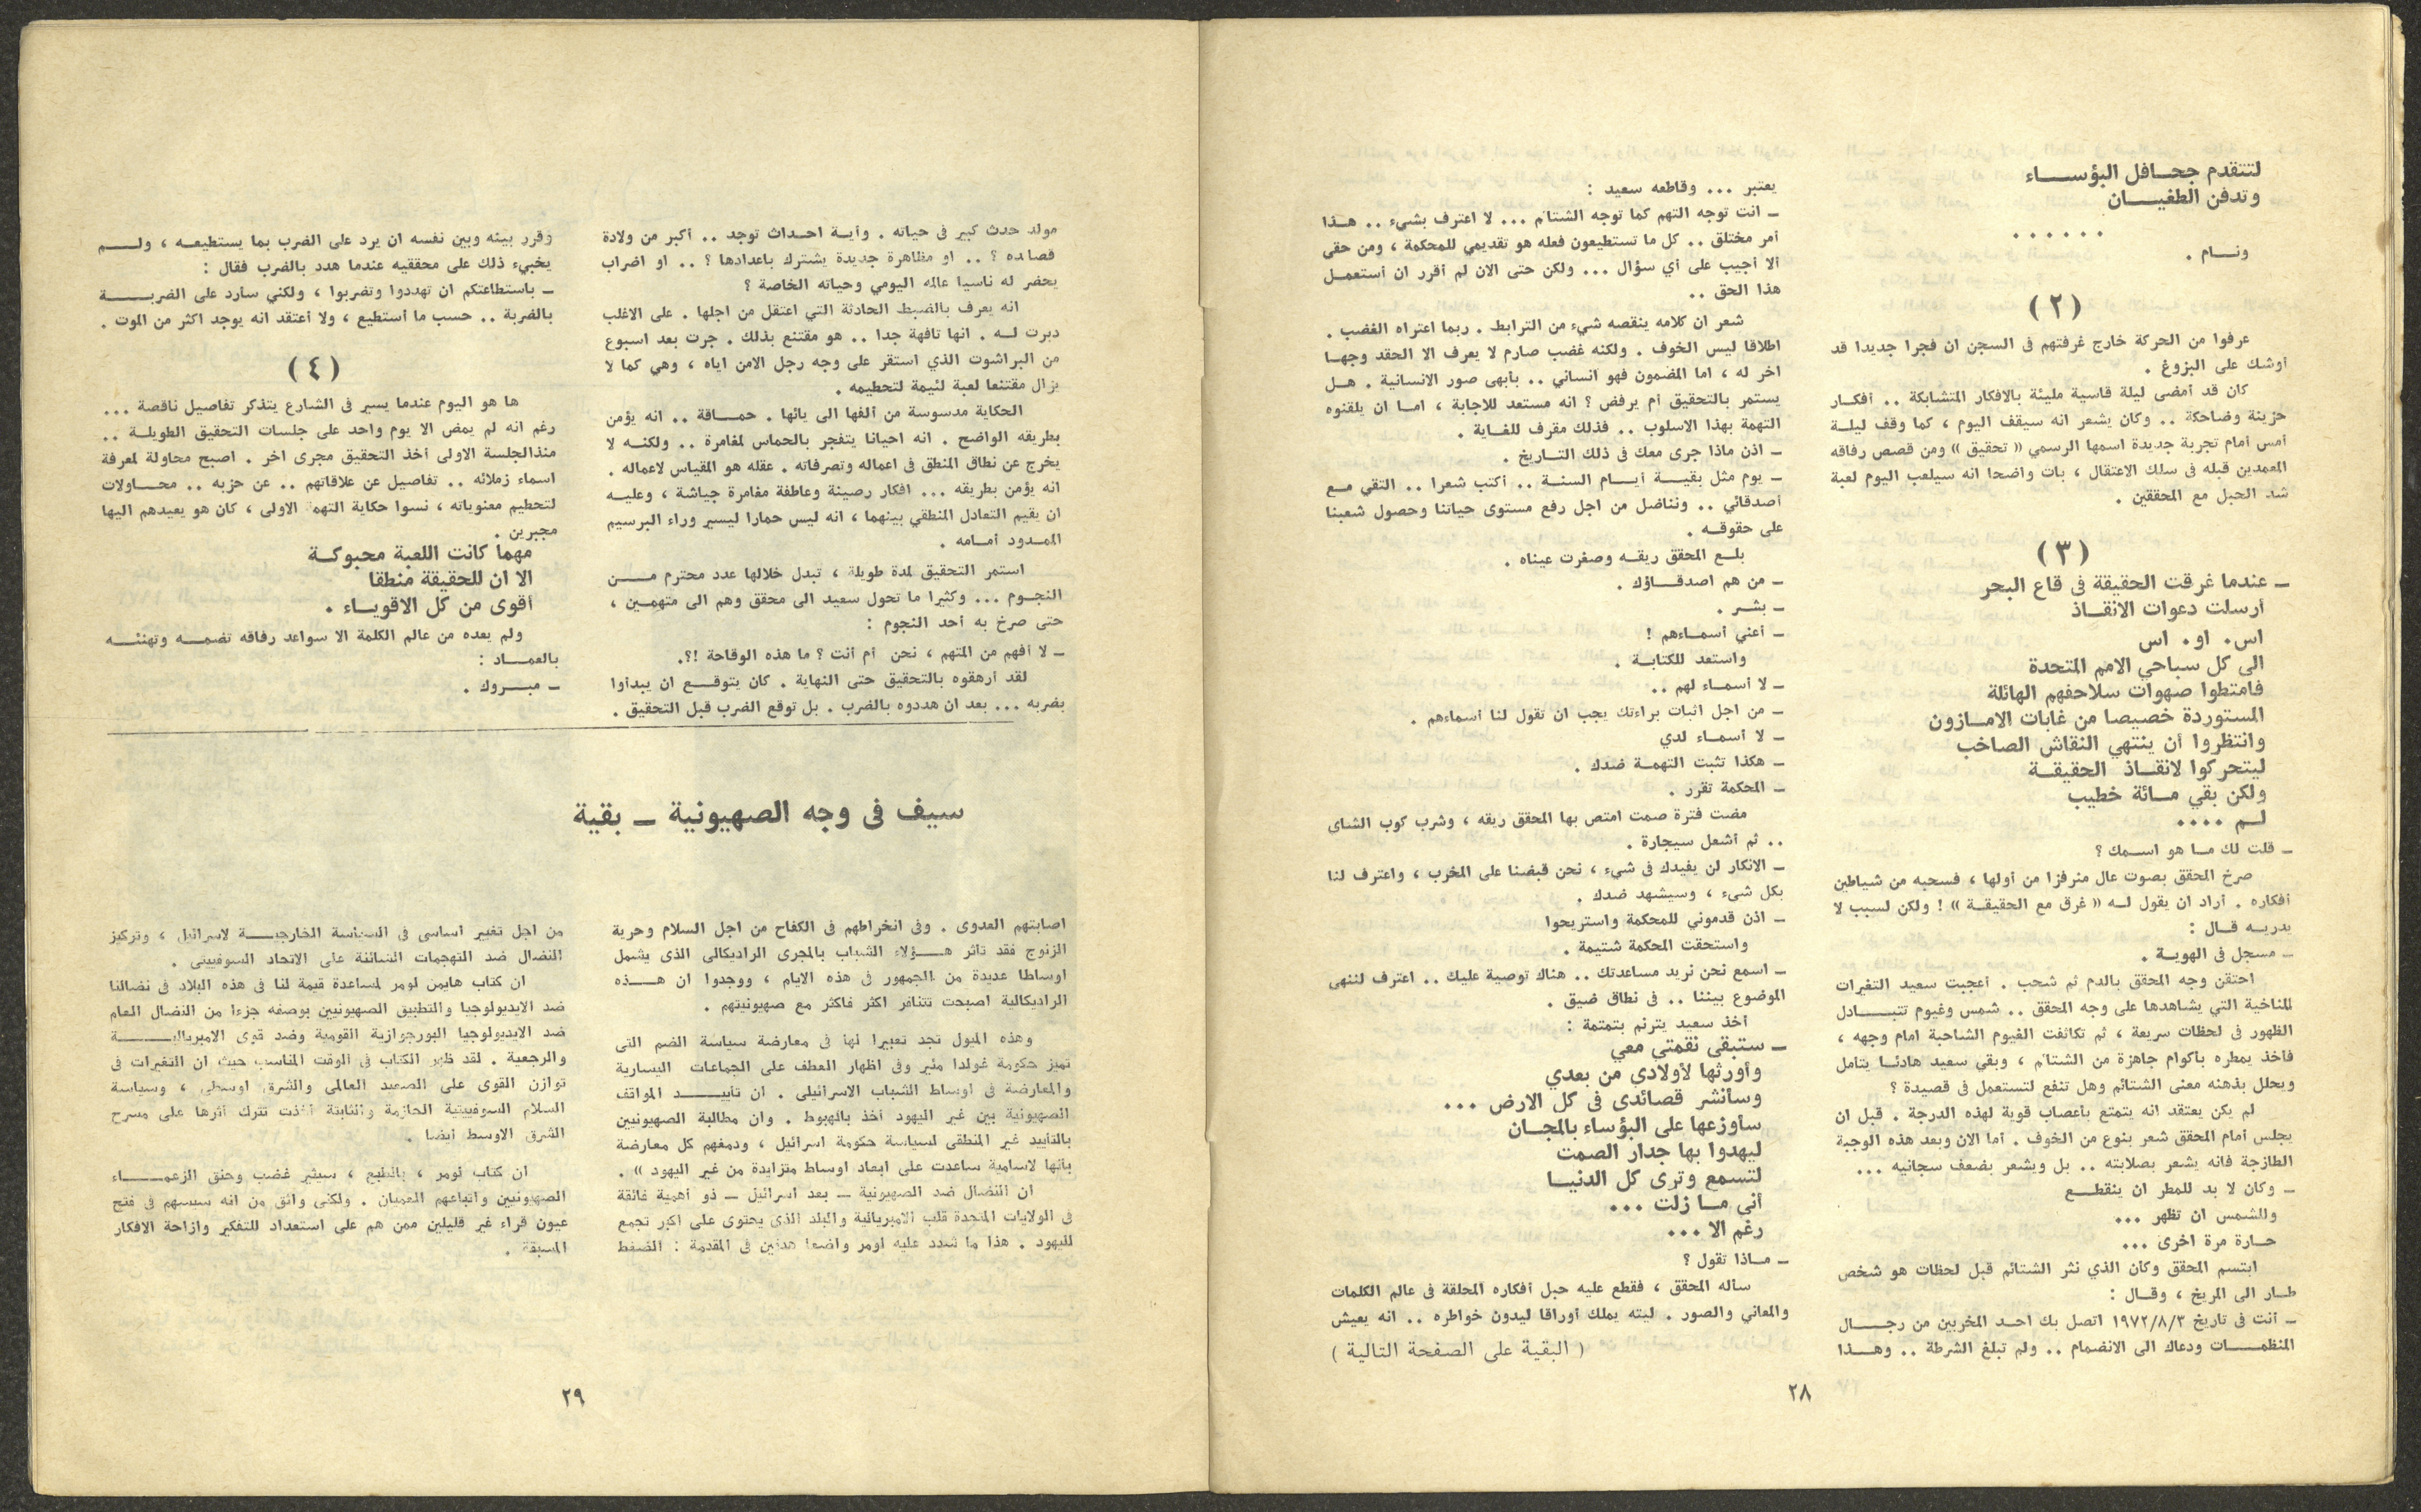 لتتقدم جحافل البؤساء
وتدفن الطغيان
......
ونام .
( ٢ )
عرفوا من الحركة خارج غرفتهم فى السجن ان فجرا جديدا قد
أوشك على البزوغ .
كان قد أمضى ليلة قاسية مليئة بالافكار المتشابكة .. أفكار
حزينة وضاحكة .. وكان يشعر انه سيقف اليوم ، كما وقف ليلة
أمس أمام تجربة جديدة اسمها الرسمي « تحقيق » ومن قصص رفاقه
المعمدين قبله فى سلك الاعتقال ، بات واضحا انه سيلعب اليوم لعبة
شد الحبل مع المحققين .
( ٣ )
ـ عندما غرقت الحقيقة فى قاع البحر
أرسلت دعوات الانقاذ
اس . او . اس
الى كل سباحي الامم المتحدة
فامتطوا صهوات سلاحفهم الهائلة
المستوردة خصيصا من غابات الامازون
وانتظروا أن ينتهي النقاش الصاخب
ليتحركوا لانقاذ الحقيقة
ولكن بقي مائة خطيب
لم ....
ـ قلت لك ما هو اسمك ؟
صرخ المحقق بصوت عال منرفزا من أولها ، فسحبه من شياطين
أفكاره . أراد ان يقول له « غرق مع الحقيقة » ! ولكن لسبب لا
يدريه قال :
ـ مسجل فى الهوية .
احتقن وجه المحقق بالدم ثم شحب . أعجبت سعيد التغيرات
المناخية التي يشاهدها على وجه المحقق .. شمس وغيوم تتبادل
الظهور فى لحظات سريعة ، ثم تكاثفت الغيوم الشاحبة امام وجهه ،
فأخذ يمطره بأكوام جاهزة من الشتائم ، وبقي سعيد هادئا يتأمل
ويحلل بذهنه معنى الشتائم وهل تنفع لتستعمل فى قصيدة ؟
لم يكن يعتقد انه يتمتع بأعصاب قوية لهذه الدرجة . قبل ان
يجلس أمام المحقق شعر بنوع من الخوف . أما الان وبعد هذه الوجبة
الطازجة فانه يشعر بصلابته .. بل ويشعر بضعف سجانيه ...
ـ وكان لا بد للمطر ان ينقطع
وللشمس ان تظهر ...
حارة مرة اخرى ...
ابتسم المحقق وكأن الذي نثر الشتائم قبل لحظات هو شخص
طار الى المريخ ، وقال :
ـ أنت فى تاريخ ١٩٧٢/٨/٣ اتصل بك احد المخربين من رجال
المنظمات ودعاك الى الانضمام .. ولم تبلغ الشرطة .. وهذا
يعتبر ... وقاطعه سعيد :
ـ انت توجه التهم كما توجه الشتائم ... لا اعترف بشيء .. هذا
أمر مختلق .. كل ما تستطيعون فعله هو تقديمي للمحكمة ، ومن حقى
ألا أجيب على أي سؤال ... ولكن حتى الان لم أقرر ان أستعمل
هذا الحق ..
شعر ان كلامه ينقصه شيء من الترابط . ربما اعتراه الغضب .
اطلاقا ليس الخوف . ولكنه غضب صارم لا يعرف الا الحقد وجها
اخر له ، اما المضمون فهو انساني .. بأبهى صور الانسانية . هل
يستمر بالتحقيق أم يرفض ؟ انه مستعد للاجابة ، اما ان يلقنوه
التهمة بهذا الاسلوب .. فذلك مقرف للغاية .
ـ اذن ماذا جرى معك فى ذلك التاريخ .
ـ يوم مثل بقية أيام السنة .. أكتب شعرا .. التقي مع
أصدقائي .. ونناضل من اجل رفع مستوى حياتنا وحصول شعبنا
على حقوقه .
بلع المحقق ريقه وصغرت عيناه .
ـ من هم اصدقاؤك .
ـ بشر .
ـ أعني أسماءهم !
واستعد للكتابة .
ـ لا أسماء لهم ..
ـ من اجل اثبات براءتك يجب ان تقول لنا أسماءهم .
ـ لا أسماء لدي
ـ هكذا تثبت التهمة ضدك .
ـ المحكمة تقرر .
مضت فترة صمت امتص بها المحقق ريقه ، وشرب كوب الشاى
.. ثم أشعل سيجارة .
ـ الانكار لن يفيدك فى شيء ، نحن قبضنا على المخرب ، واعترف لنا
بكل شىء ، وسيشهد ضدك .
ـ اذن قدموني للمحكمة واستريحوا
واستحقت المحكمة شتيمة .
ـ اسمع نحن نريد مساعدتك .. هناك توصية عليك .. اعترف لننهى
الموضوع بيننا .. فى نطاق ضيق .
أخذ سعيد يترنم بتمتمة :
ـ ستبقى نقمتي معي
وأورثها لأولادي من بعدي
وسأنشر قصائدى فى كل الارض ...
سأوزعها على البؤساء بالمجان
ليهدوا بها جدار الصمت
لتسمع وترى كل الدنيا
أنى ما زلت ...
رغم الا ...
ـ ماذا تقول ؟
سأله المحقق ، فقطع عليه حبل أفكاره المحلقة فى عالم الكلمات
والمعاني والصور . ليته يملك أوراقا ليدون خواطره .. انه يعيش
( البقية على الصفحة التالية )
٢٨
مولد حدث كبير فى حياته . وأية احداث توجد .. أكبر من ولادة
قصائده ؟ .. او مظاهرة جديدة يشترك باعدادها ؟ .. او اضراب
يحضر له ناسيا عالمه اليومي وحياته الخاصة ؟
انه يعرف بالضبط الحادثة التي اعتقل من اجلها . على الاغلب
دبرت له . انها تافهة جدا .. هو مقتنع بذلك . جرت بعد اسبوع
من البراشوت الذي استقر على وجه رجل الامن اياه ، وهي كما لا
يزال مقتنعا لعبة لئيمة لتحطيمه .
الحكاية مدسوسة من ألفها الى يائها . حماقة .. انه يؤمن
بطريقه الواضح . انه احيانا يتفجر بالحماس لمغامرة .. ولكنه لا
يخرج عن نطاق المنطق فى اعماله وتصرفاته . عقله هو المقياس لاعماله .
انه يؤمن بطريقه ... افكار رصينة وعاطفة مغامرة جياشة ، وعليه
ان يقيم التعادل المنطقي بينهما ، انه ليس حمارا ليسير وراء البرسيم
الممدود أمامه .
استمر التحقيق لمدة طويلة ، تبدل خلالها عدد محترم من
النجوم ... وكثيرا ما تحول سعيد الى محقق وهم الى متهمين ،
حتى صرخ به أحد النجوم :
ـ لا أفهم من المتهم ، نحن أم أنت ؟ ما هذه الوقاحة !؟.
لقد أرهقوه بالتحقيق حتى النهاية . كان يتوقع ان يبدأوا
بضربه ... بعد ان هددوه بالضرب . بل توقع الضرب قبل التحقيق .
وقرر بينه وبين نفسه ان يرد على الضرب بما يستطيعه ، ولم
يخبيء ذلك على محققيه عندما هدد بالضرب فقال :
ـ باستطاعتكم ان تهددوا وتضربوا ، ولكني سأرد على الضربة
بالضربة .. حسب ما أستطيع ، ولا أعتقد انه يوجد اكثر من الموت .
( ٤ )
ها هو اليوم عندما يسير فى الشارع يتذكر تفاصيل ناقصة ...
رغم انه لم يمض الا يوم واحد على جلسات التحقيق الطويلة ..
منذالجلسة الاولى أخذ التحقيق مجرى اخر . اصبح محاولة لمعرفة
اسماء زملائه .. تفاصيل عن علاقاتهم .. عن حزبه .. محاولات
لتحطيم معنوياته ، نسوا حكاية التهمة الاولى ، كان هو يعيدهم اليها
مجبرين .
مهما كانت اللعبة محبوكة
الا ان للحقيقة منطقا
أقوى من كل الاقوياء .
ولم يعده من عالم الكلمة الا سواعد رفاقه تضمه وتهنئه
بالعماد :
ـ مبروك .
سيف فى وجه الصهيونية ـ بقية
اصابتهم العدوى . وفى انخراطهم فى الكفاح من اجل السلام وحرية
الزنوج فقد تأثر هؤلاء الشباب بالمجرى الراديكالى الذى يشمل
اوساطا عديدة من الجمهور فى هذه الايام ، ووجدوا ان هذه
الراديكالية اصبحت تتنافر اكثر فاكثر مع صهيونيتهم .
وهذه الميول تجد تعبيرا لها فى معارضة سياسة الضم التى
تميز حكومة غولدا مئير وفى اظهار العطف على الجماعات اليسارية
والمعارضة فى اوساط الشباب الاسرائيلى . ان تأييد المواقف
الصهيونية بين غير اليهود أخذ بالهبوط . وان مطالبة الصهيونيين
بالتأييد غير المنطقى لسياسة حكومة اسرائيل ، ودمغهم كل معارضة
بأنها لاسامية ساعدت على ابعاد اوساط متزايدة من غير اليهود » .
ان النضال ضد الصهيونية ـ بعد اسرائيل ـ ذو أهمية فائقة
فى الولايات المتحدة قلب الامبريالية والبلد الذى يحتوى على اكبر تجمع
لليهود . هذا ما شدد عليه لومر واضعا هدفين فى المقدمة : الضغط
من اجل تغيير أساسى فى السياسة الخارجية لاسرائيل ، وتركيز
النضال ضد التهجمات الشائنة على الاتحاد السوفييتى .
ان كتاب هايمن لومر لمساعدة قيمة لنا فى هذه البلاد فى نضالنا
ضد الايديولوجيا والتطبيق الصهيونيين بوصفه جزءا من النضال العام
ضد الايديولوجيا البورجوازية القومية وضد قوى الامبريالية
والرجعية . لقد ظهر الكتاب فى الوقت المناسب حيث ان التغيرات فى
توازن القوى على الصعيد العالمى والشرق اوسطى ، وسياسة
السلام السوفييتية الحازمة والثابتة أخذت تترك أثرها على مسرح
الشرق الاوسط أيضا .
ان كتاب لومر ، بالطبع ، سيثير غضب وحنق الزعماء
الصهيونيين واتباعهم العميان . ولكنى واثق من انه سيسهم فى فتح
عيون قراء غير قليلين ممن هم على استعداد للتفكير وازاحة الافكار
المسبقة .
٢٩